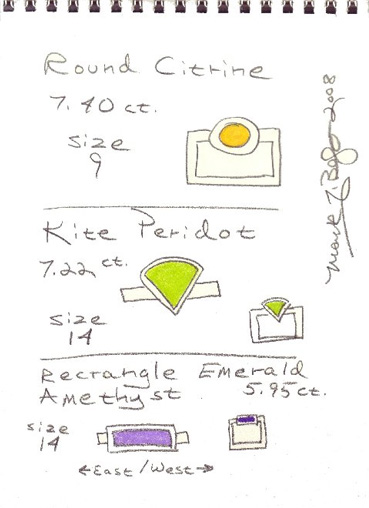 Round Citrine
7.40 ct.
size
9
Kite Peridot
7.22 ct.
size
14
Recrangle Emerald
Amethyst 5.95 ct.
size
14
←East/West→
Mark 2008